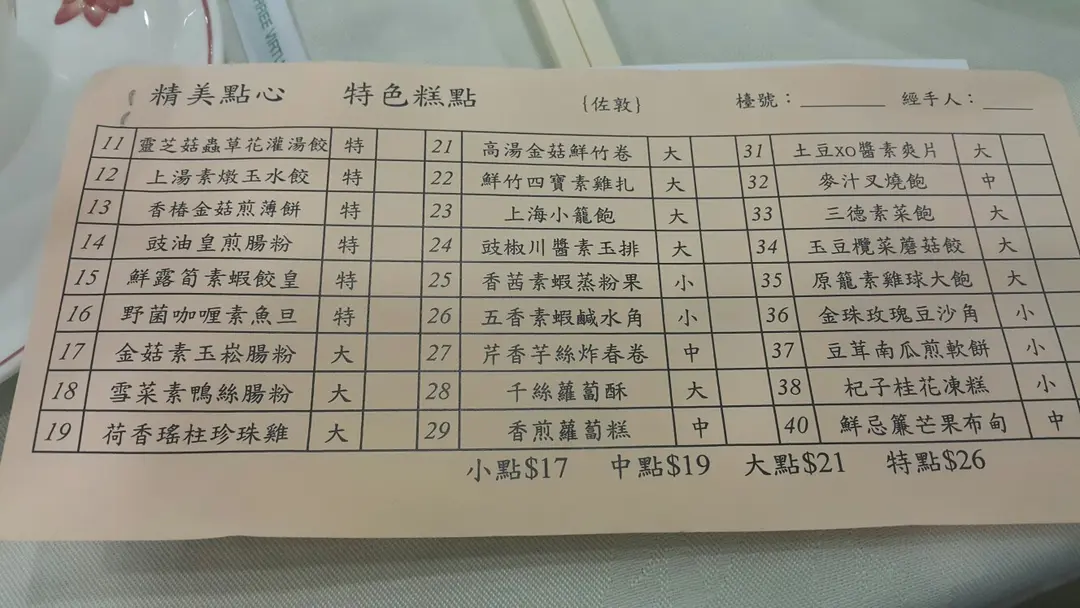 精美點心 特色糕點 {佐敦} 檯號：______ 經手人：____
11 靈芝菇蟲草花灌湯餃 特 21 高湯金菇鮮竹卷 大 31 土豆XO醬素爽片 大
12 上湯素燉玉水餃 特 22 鮮竹四寶素雞扎 大 32 麥汁叉燒飽 中
13 香椿金菇煎薄餅 特 23 上海小籠飽 大 33 三德素菜飽 大
14 豉油皇煎腸粉 特 24 豉椒川醬素玉排 大 34 玉豆欖菜蘑菇餃 大
15 鮮露筍素蝦餃皇 特 25 香茜素蝦蒸粉果 小 35 原籠素雞球大飽 大
16 野菌咖喱素魚旦 特 26 五香素蝦鹹水角 小 36 金珠玫瑰豆沙角 小
17 金菇素玉崧腸粉 大 27 芹香芋絲炸春卷 中 37 豆茸南瓜煎軟餅 小
18 雪菜素鴨絲腸粉 大 28 千絲蘿蔔酥 大 38 杞子桂花凍糕 小
19 荷香瑤柱珍珠雞 大 29 香煎蘿蔔糕 中 40 鮮忌簾芒果布甸 中
小點$17 中點$19 大點$21 特點$26